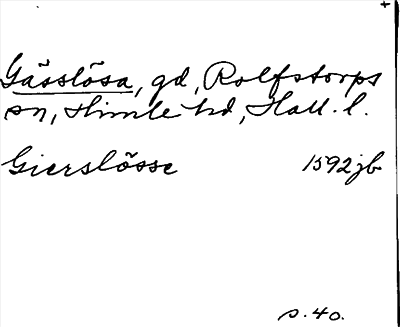 +
Gässlösa, gd, Rolfstorps
sn, Himle hd, Hall. l.
Gierslösse 1592 jb
s. 40.